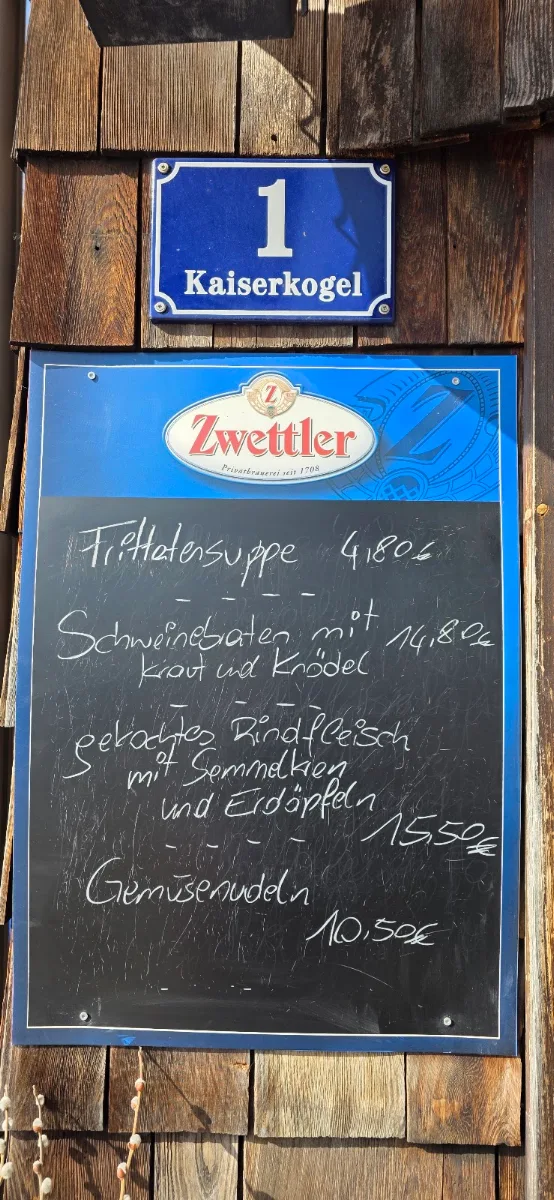 1
Kaiserkogel
Z
Zwettler
Privatbrauerei seit 1708
Z
Frittatensuppe 4,80€
- - - -
Schweinebraten mit 14,80€
Kraut und Knödel
- - - -
gekochtes Rindfleisch
mit Semmelkren
und Erdäpfeln
15,50€
- - - -
Gemüsenudeln
10,50€